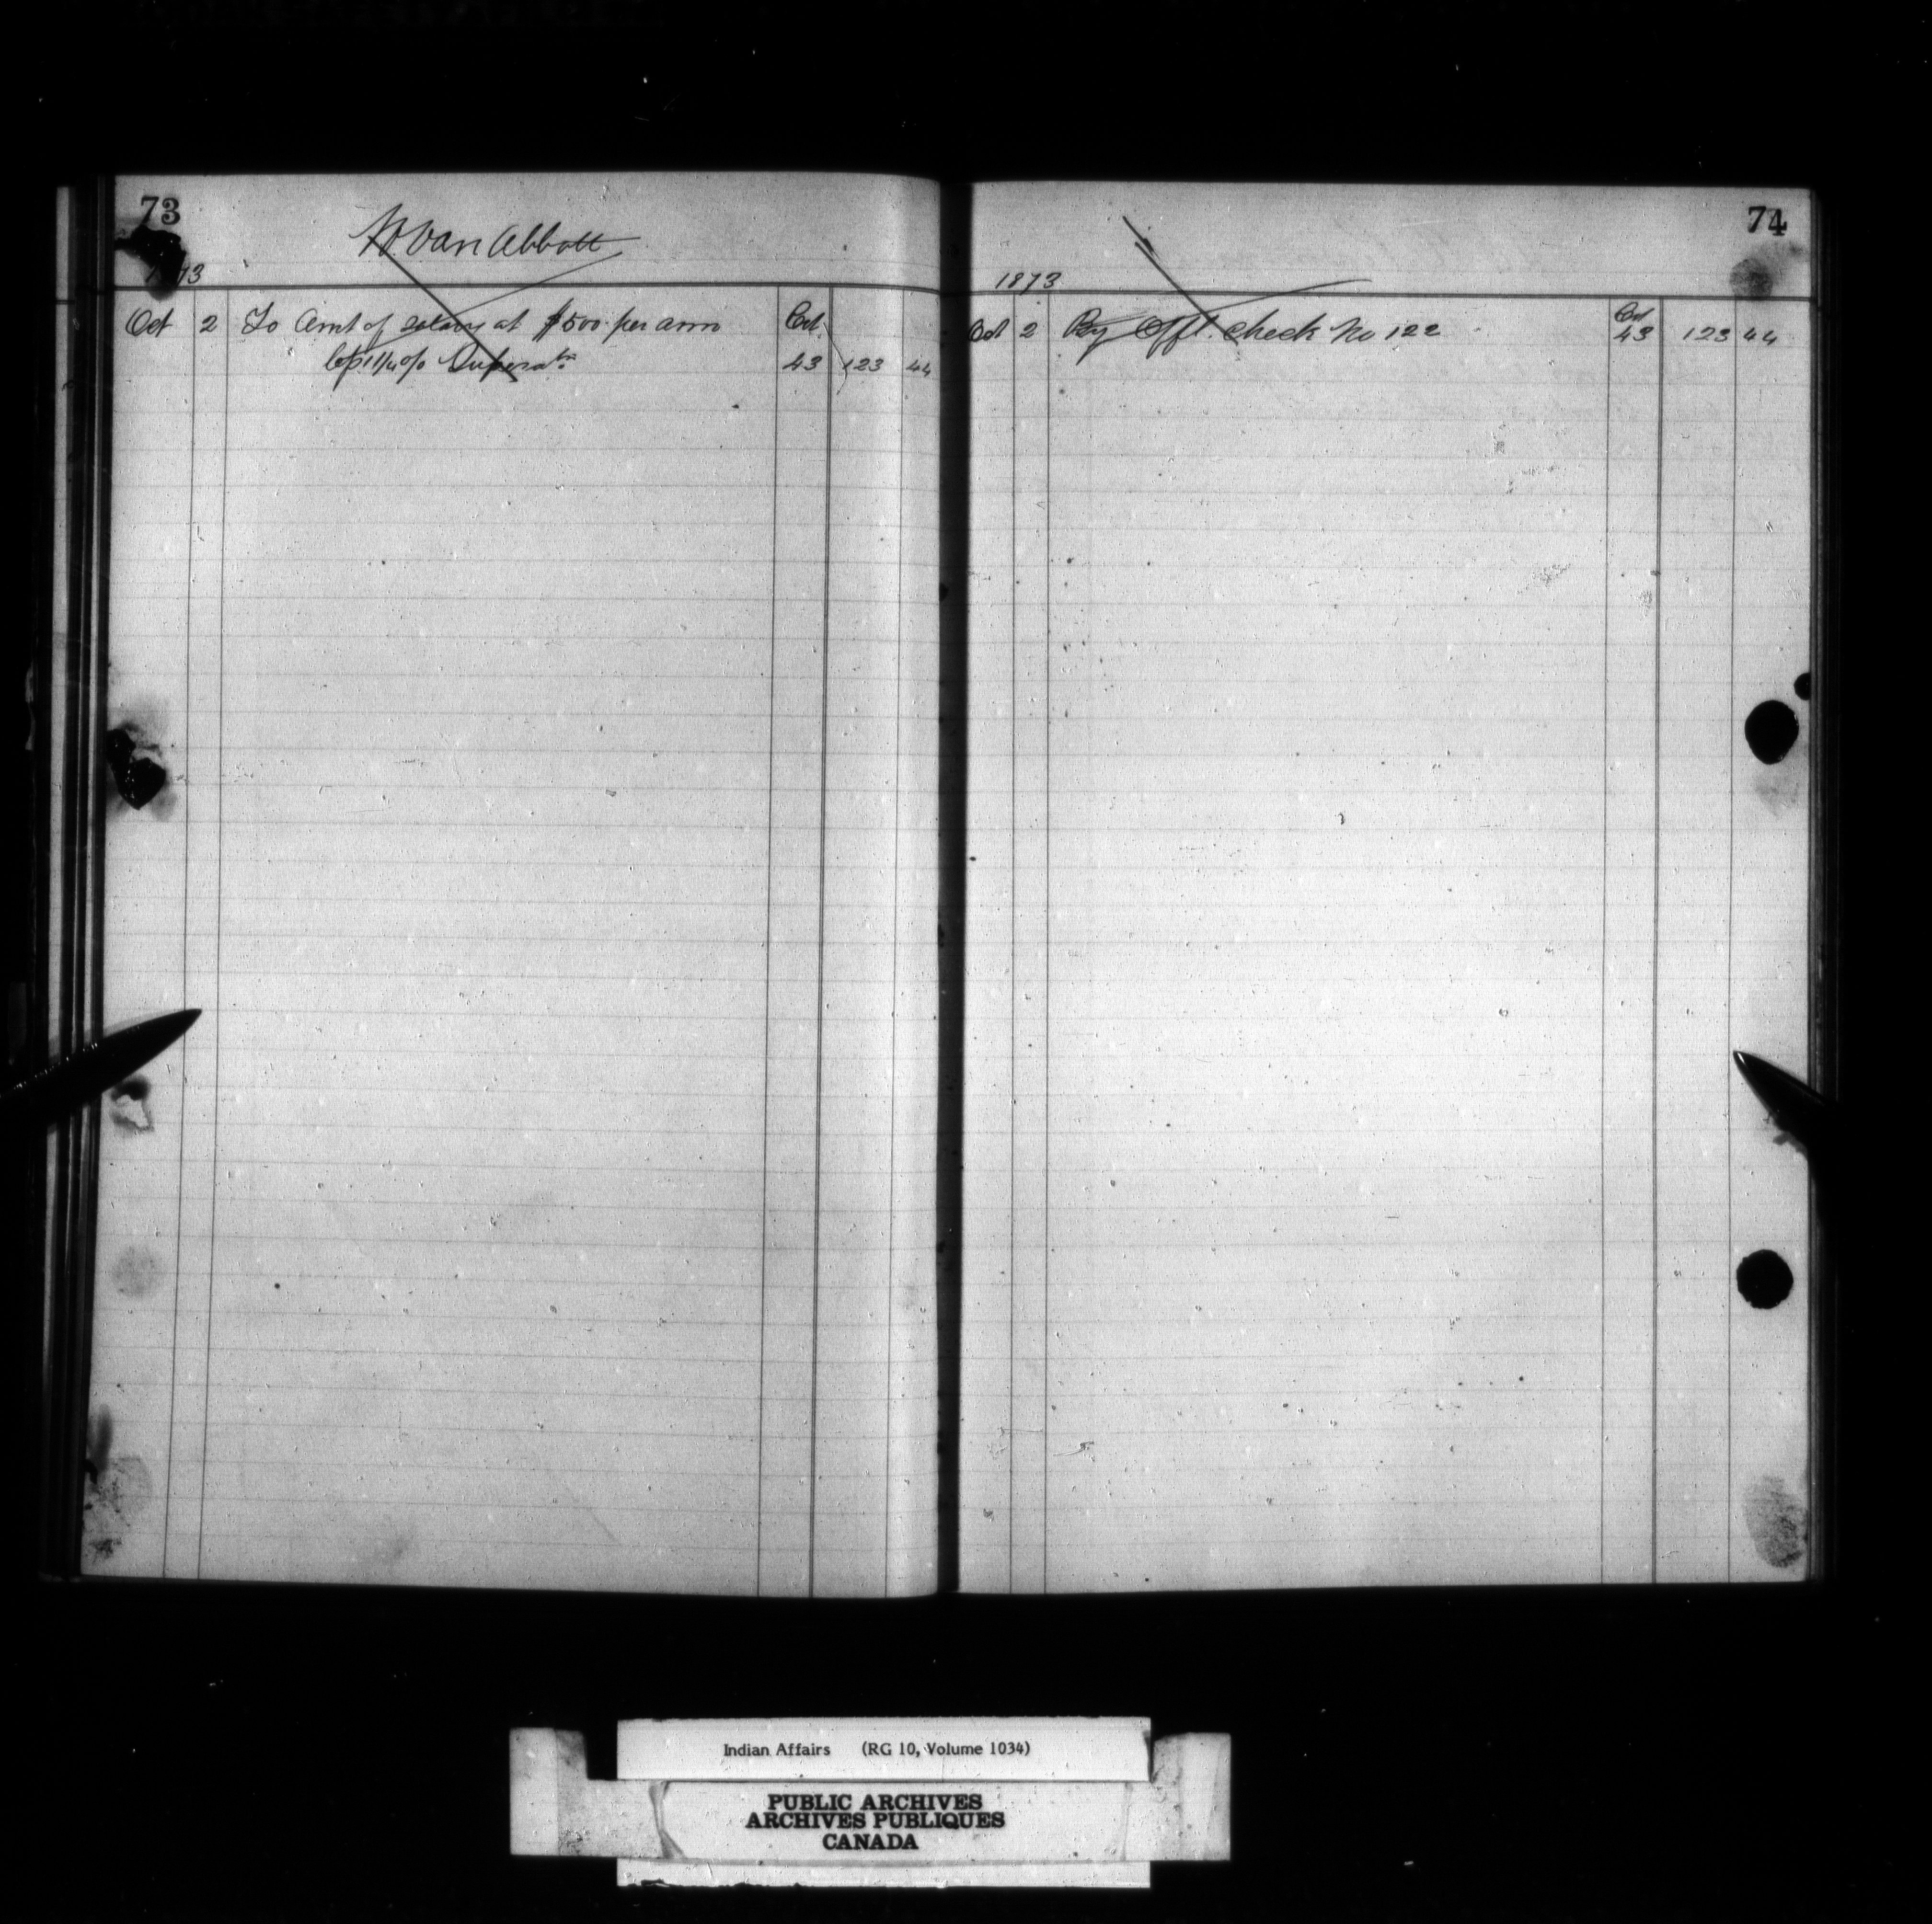 73
W. Van Abbott
1873
Oct 2 To Amt of salary at $500 per ann Oct
Less 1 1/4 o/o Superan 43 123 44
74
1873
Oct 2 By Offl. Check No 122 Oct 43 123 44
Indian Affairs (RG 10, Volume 1034)
PUBLIC ARCHIVES
ARCHIVES PUBLIQUES
CANADA